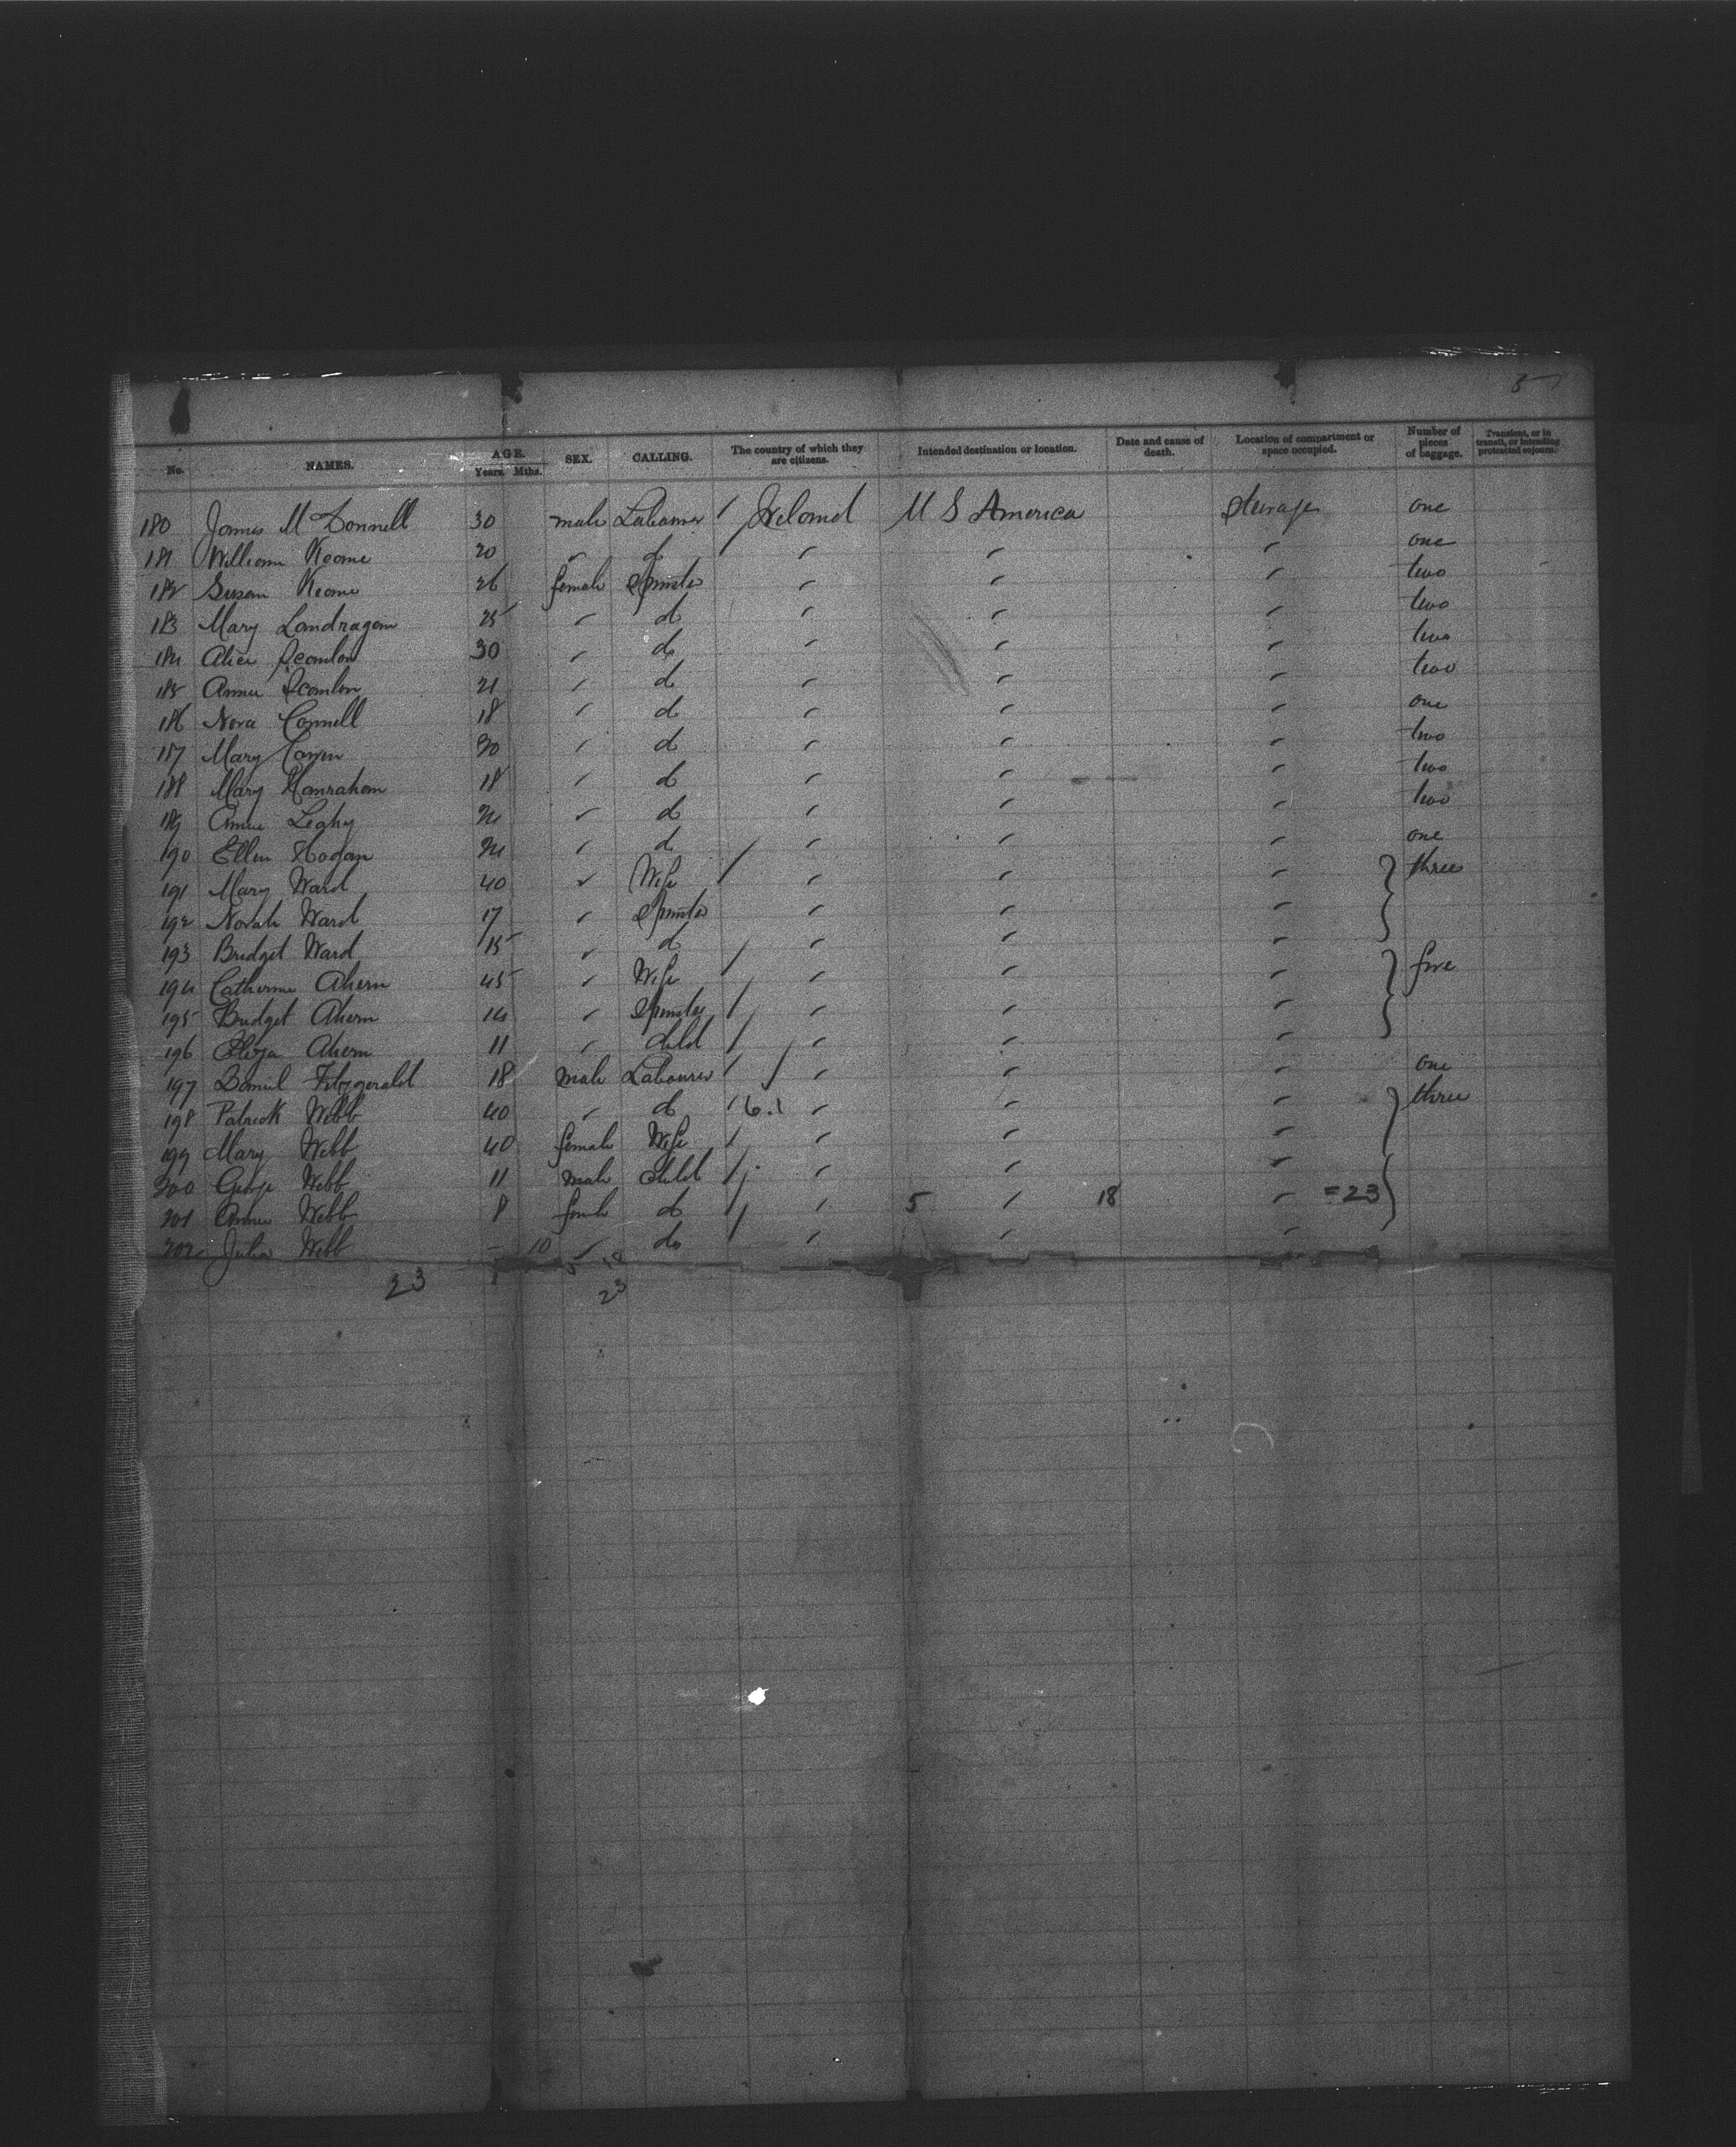 5
No. NAMES. AGE. Years. Mths. SEX. CALLING. The country of which they are citizens. Intended destination or location. Date and cause of death. Location of compartment or space occupied. Number of pieces of baggage. Transient, or in transit, or intending protracted sojourn.
180 James McDonnell 30 male Labourer / Ireland U S America Steerage one
181 William Keane 20 " do " " " one
182 Susan Keane 26 female Spinster " " " two
183 Mary Londragan 25 " do " " " two
184 Alice Scanlon 30 " do " " " two
185 Annie Scanlon 21 " do " " " two
186 Nora Connell 18 " do " " " one
187 Mary " do " " " two
188 Mary Hanrahan 18 " do " " " two
189 Annie Leahy " do " " " two
190 Ellen Hogan " do " " " one
191 Mary Ward 40 " Wife / " " " three
192 Norah Ward 17 " Spinster " " "
193 Bridget Ward 15 " do " " "
194 Catherine Ahern 45 " Wife / " " " five
195 Bridget Ahern 14 " Spinster / " " "
196 Eliza Ahern 11 " Child / " " "
197 Daniel Fitzgerald 18 male Labourer / " " " one
198 Patrick Webb 40 " do / 6.1 " " " three
199 Mary Webb 40 female Wife / " " "
200 George Webb 11 male Child / " " "
201 Annie Webb 8 female do / " 5 " 18 " =23
202 Julia Webb - 10 " do " " "
23 5 18
23